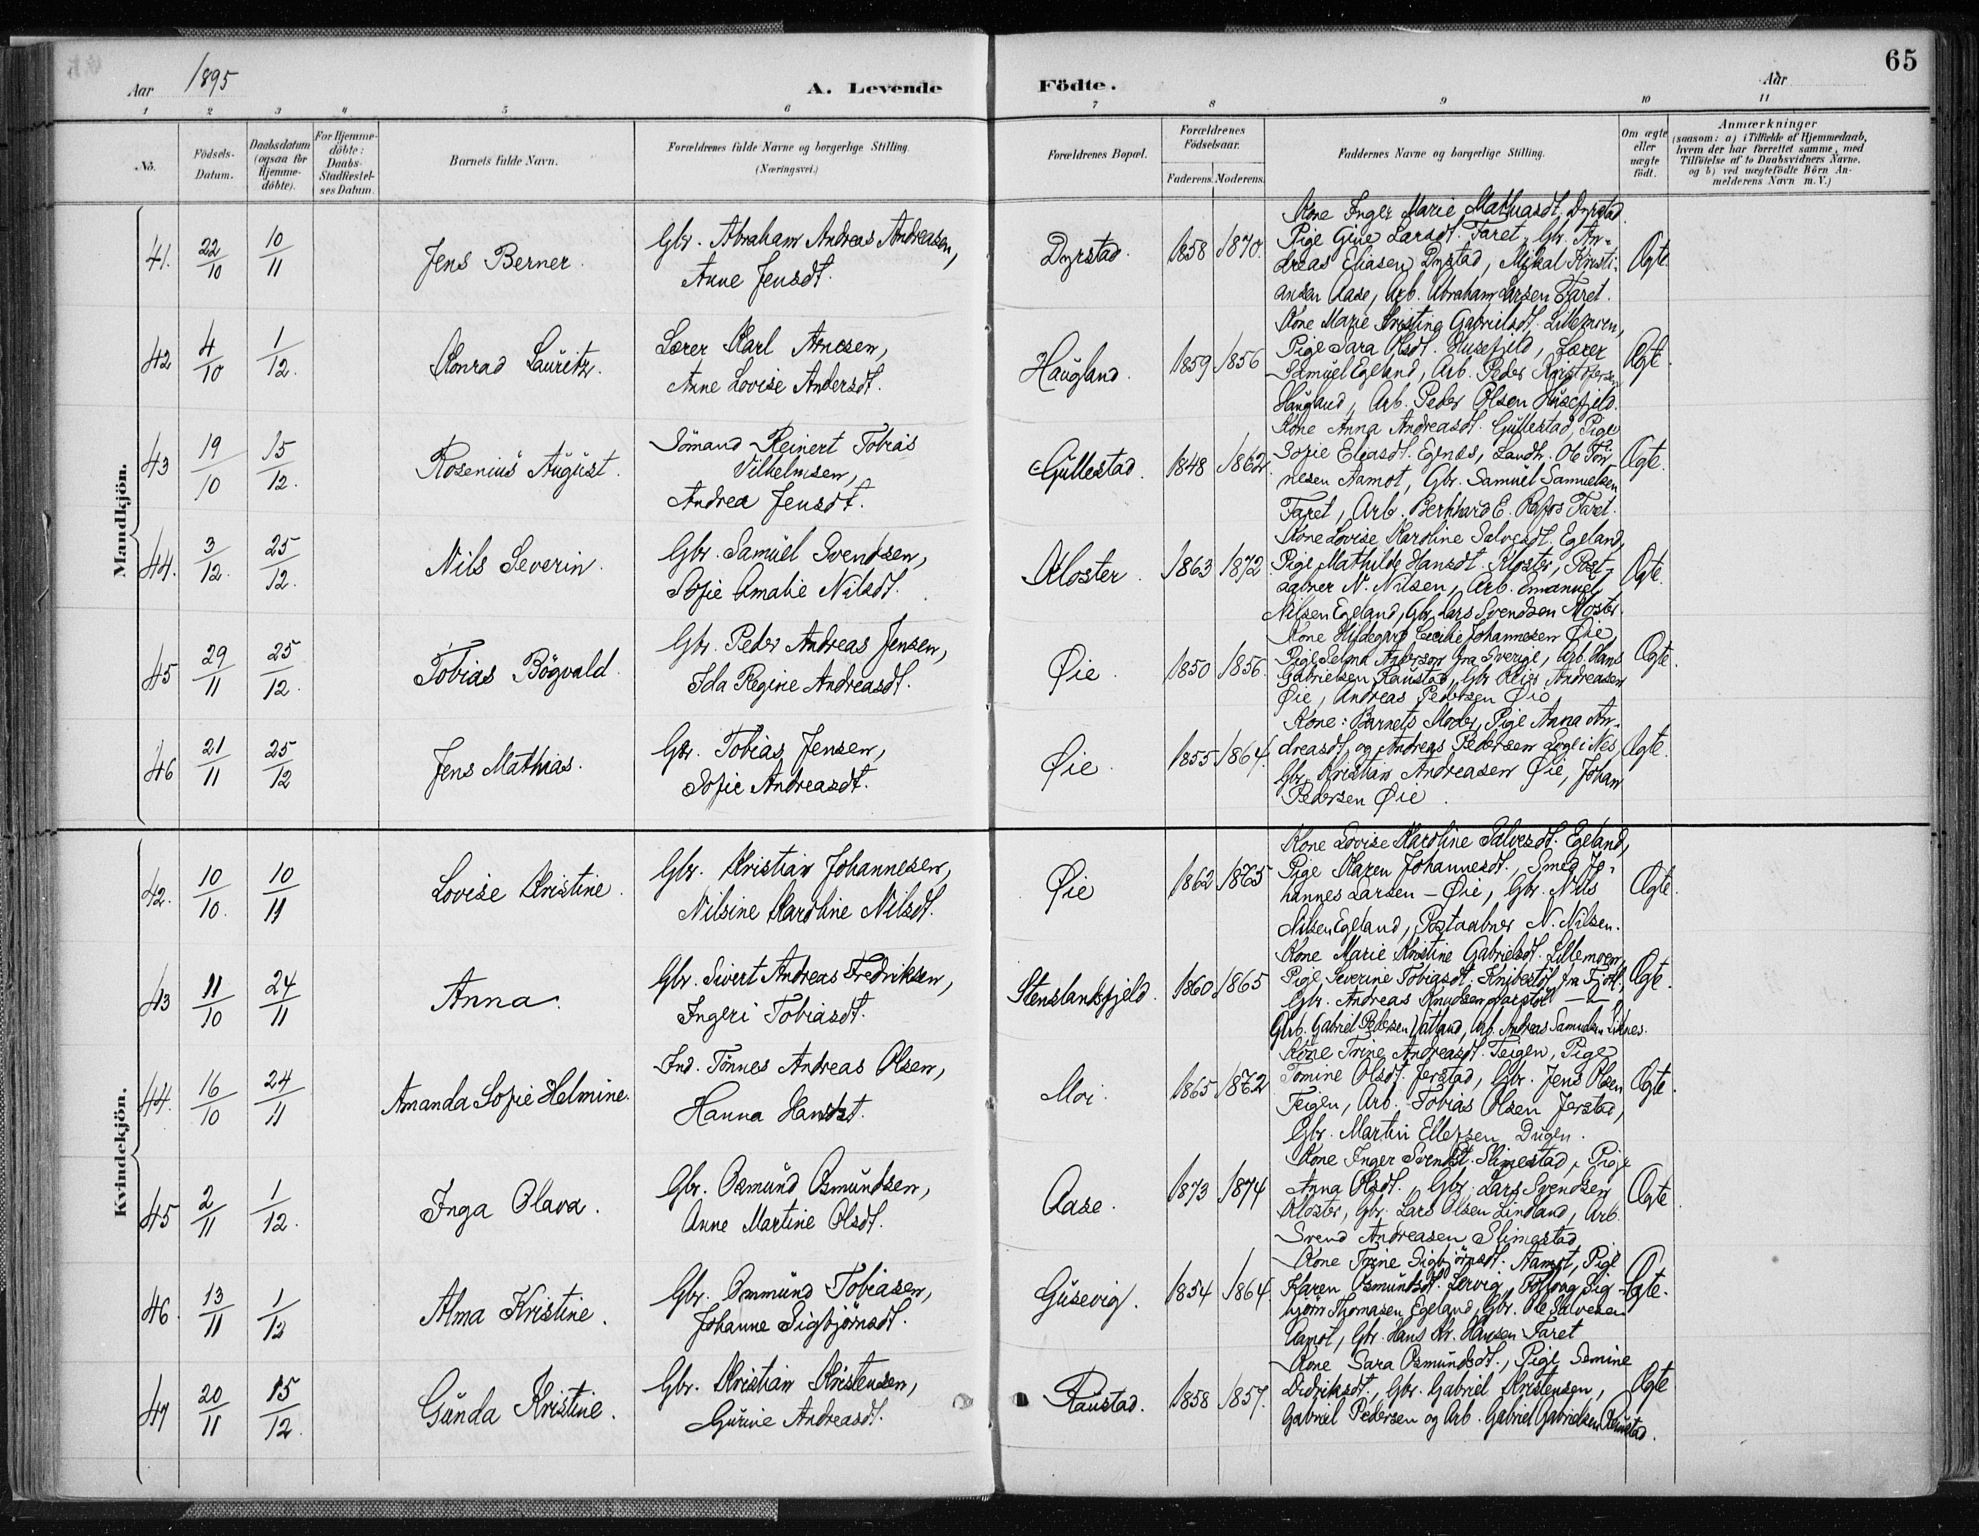 65
Aar 1895
A. Levende
Födte.
Aar
1 2 3 4 5 6 7 8 9 10 11
No.
Födsels-Datum.
Daabsdatum (ogsaa for Hjemme-döbte).
For Hjemme-döbte: Daabs-Stadfæstel-ses Datum.
Barnets fulde Navn.
Forældrenes fulde Navne og borgerlige Stilling (Næringsvei.)
Forældrenes Bopæl.
Forældrenes Födselsaar.
Faderens. Moderens.
Faddernes Navne og borgerlige Stilling.
Om ægte eller uægte födt.
Anmærkninger
(saasom: a) i Tilfælde af Hjemmedaab,
hvem der har forrettet samme, med
Tilföielse af to Daabsvidners Navne.
og b) ved uægtefödte Börn An-
melderens Navn m. V.)
Mandkjön.
41. 22/10 10/11 Jens Berner. Gbr. Abraham Andreas Andreasen,
Anne Jensdt. Dyrstad. 1858 1870. Ægte.
Kone Inger Marie Mathiasdt. Dyrstad.
Pige Gine Larsdt. Faret, Gbr. An-
dreas Eliasen Dyrstad, Mikal Kristi-
ansen Aase, Arb. Abraham Larsen Faret.
42 4/10 1/12. Konrad Lauritz. Lærer Karl Arnesen,
Anne Lovise Andersdt. Haugland. 1859 1856 Ægte.
Kone Marie Kristine Gabrielsdt. Lillemoen,
Pige Sara Olsdt. Husefjeld, Lærer
Samuel Egeland, Arb. Peder Kristofersen
Haugland, Arb. Peder Olsen Husefjeld.
43 19/10 15/12. Rosenius August. Sömand Reinert Tobias
Vilhelmsen,
Andrea Jensdt. Gullestad. 1848 1862. Ægte.
Kone Anna Andreasdt. Gullestad, Pige
Sofie Eliasdt. Egnes, Landh. Ole Tön-
nesen Aamot, Gbr. Samuel Samuelsen
Faret, Arb. Berthard E. Rafos Faret.
44. 3/12. 25/12. Nils Severin. Gbr. Samuel Svendsen,
Sofie Amalie Nilsdt. Kloster. 1863 1872 Ægte.
Kone Lovise Karoline Salvesdt. Egeland,
Pige Mathilde Hansdt. Kloster, Post-
aabner N. Nilsen, Arb. Emanuel
Nilsen Egeland, Gbr. Lars Svendsen Kloster.
45 29/11 25/12. Tobias Bögvald. Gbr. Peder Andreas Jensen,
Ida Regine Andreasdt. Øie. 1850 1856. Ægte.
Kone Hildegard Cecilie Johannesen Øie,
Pige Selma Anderson fra Sverige, Arb. Hans
Gabrielsen Raustad, Gbr. Andreasen
Øie, Andreas Pedersen Øie
46 21/11 25/12 Jens Mathias. Gbr. Tobias Jensen,
Sofie Andreasdt. Øie. 1855 1864. Ægte.
Kone: Barnets Moder, Pige Anna An-
dreasdt. og Andreas Pedersen Nes,
Gbr. Kristian Andreasen Øie, Johan
Pedersen Øie.
Kvindekjön.
42. 10/10. 10/11 Lovise Kristine. Gbr. Kristian Johannesen,
Nilsine Karoline Nilsdt. Øie 1862 1865 Ægte.
Kone Lovise Karoline Salvesdt. Egeland,
Pige Maren Johannesdt. Smed Jo-
hannes Larsen - Øie, Gbr. Nils
Nilsen Egeland, Postaabner N. Nilsen.
43 11/10 24/11 Anna. Gbr. Sivert Andreas Fredriksen,
Ingeri Tobiasdt. Stenslandsfjeld. 1860 1865 Ægte.
Kone Marie Kristine Gabrielsdt. Lillemoen,
Pige Severine Tobiasdt. fra Fjotl.,
Gbr. Andreas Knudsen
Gabriel Pedersen Vatland, Arb. Andreas Samuelsen Liknes.
44. 16/10 24/11 Amanda Sofie Helmine. Ind. Tönnes Andreas Olsen,
Hanna Hansdt. Moi. 1865 1872 Ægte.
Kone Trine Andreasdt. Teigen, Pige
Tomine Olsdt. Jerstad, Gbr. Jens Olsen
Teigen, Arb. Tobias Olsen Jerstad,
Gbr. Martin Ellefsen Dugen.
45 2/11 1/12. Inga Olava. Gbr. Osmund Osmundsen,
Anne Martine Olsdt. Aase. 1873 1874 Ægte.
Kone Inger Svendsdt. Slimestad, Pige
Anna Olsdt., Gbr. Lars Svendsen
Kloster, Gbr. Lars Olsen Lindland, Arb.
Svend Andreasen Slimestad
46. 13/11 1/12 Alma Kristine. Gbr. Ommund Tobiasen,
Johanne Sigbjörnsdt. Gusevig. 1854 1864. Ægte.
Kone Trine Sigbjörnsdt. Aamot, Pige
Karen Osmundsdt. Lervig, Sig-
björn Thomasen Egeland, Gbr. Ole Salvesen
Aamot, Gbr. Hans Kr. Hansen Faret
47 20/11 15/12. Gunda Kristine. Gbr. Kristian Kristensen,
Gurine Andreasdt. Raustad. 1858 1857. Ægte
Kone Sara Osmundsdt., Pige Semine
Didriksdt., Gbr. Gabriel Kristensen,
Gabriel Pedersen og Arb. Gabriel Gabrielsen Raustad.